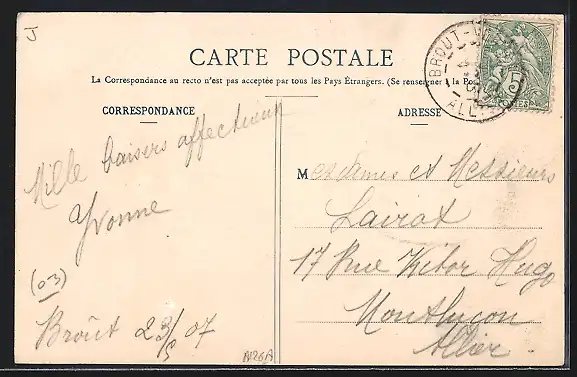 J
CARTE POSTALE
La Correspondance au recto n'est pas acceptée par tous les Pays Étrangers. (Se renseigner à la Poste)
CORRESPONDANCE
ADRESSE
Mille baisers affectueux
Yvonne
(03)
Broût 23/8 07
A126A
Mesdames et Messieurs
Lairot
17 Rue Victor Hugo
Montluçon
Allier
BROUT-
ALLIER
5
POSTES